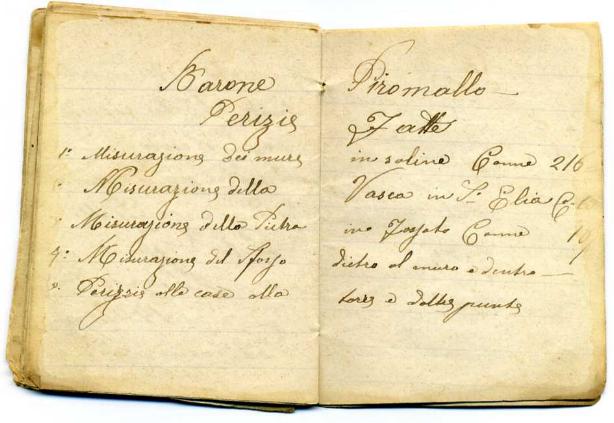 Barone
Perizie
1° Misurazione dei mura
Misurazione della
Misurazione della Pietra
4° Misurazione del fosso
Perizia alle case alla
Piromallo
Fatte
in soline Canne 216
Vasca in S. Elia C.
in Fossato Canne 109
dietro al muro e dentro
torre e delle punte